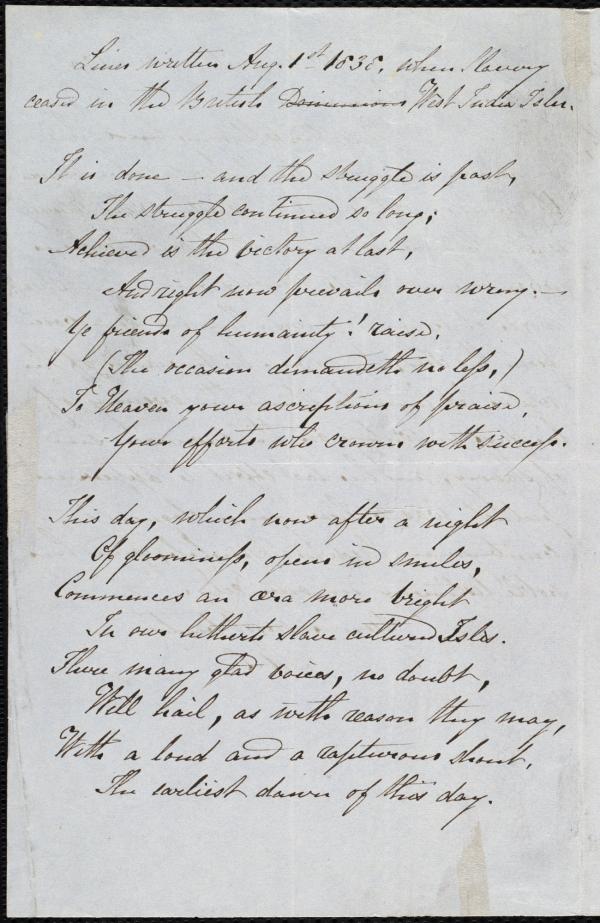 Lines written Aug. 1st 1838, when Slavery
ceased in the British Dominions West India Isles.
It is done — and the struggle is past,
The struggle continued so long;
Achieved is the victory at last,
And right now prevails over wrong. —
Ye friends of humanity! raise,
(The occasion demandeth no less,)
To Heaven your ascriptions of praise,
Your efforts who crowns with success.
This day, which now after a night
Of gloominess, opens in smiles,
Commences an æra more bright
In our hitherto slave cultured Isles.
There many glad voices, no doubt,
Will hail, as with reason they may,
With a loud and a rapturous shout,
The earliest dawn of this day.